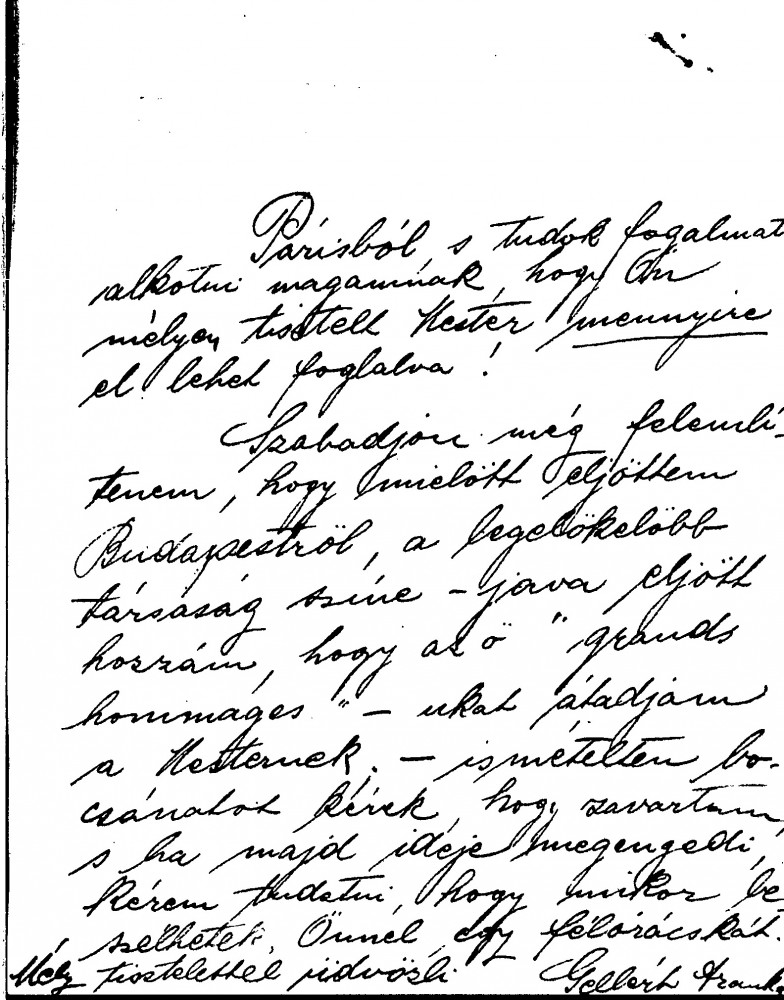 Párisból, s tudok fogalmat
alkotni magamnak, hogy Ön
mélyen tisztelt Mester mennyire
el lehet foglalva!
Szabadjon még felemlí-
tenem, hogy mielőtt eljöttem
Budapestről, a legelőkelőbb
társaság színe-java eljött
hozzám, hogy az ő "grands
hommages" - ukat átadjam
a Mesternek. - ismételten bo-
csánatot kérek, hogy zavartam,
s ha majd ideje megengedi,
kérem tudatni, hogy mikor be
szélhetek Önnel egy félórácskát.
Mély tisztelettel üdvözli Gellért